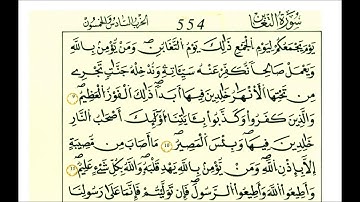 سُورَةُ التَّغَابُنِ 554 الحزب السادس والخمسون
يَوْمَ يَجْمَعُكُمْ لِيَوْمِ اِ۬لْجَمْعِ ذَٰلِكَ يَوْمُ اُ۬لتَّغَابُنِ وَمَنْ يُّومِنۢ بِاللَّهِ
وَيَعْمَلْ صَٰلِحاً نُّكَفِّرْ عَنْهُ سَيِّـَٔاتِهِۦ وَنُدْخِلْهُ جَنَّٰتٍ تَجْرِے
مِن تَحْتِهَا اَ۬لَانْهَٰرُ خَٰلِدِينَ فِيهَآ أَبَداً ذَٰلِكَ اَ۬لْفَوْزُ اُ۬لْعَظِيمُ
وَالذِينَ كَفَرُواْ وَكَذَّبُواْ بِـَٔايَٰتِنَآ أُوْلَٰٓئِكَ أَصْحَٰبُ اُ۬لنَّارِ
خَٰلِدِينَ فِيهَا وَبِيسَ اَ۬لْمَصِيرُ مَآ أَصَابَ مِن مُّصِيبَةٍ
اِلَّا بِإِذْنِ اِ۬للَّهِ وَمَنْ يُّومِنۢ بِاللَّهِ يَهْدِ قَلْبَهُۥ وَاللَّهُ بِكُلِّ شَےْءٍ عَلِيمٌ
وَأَطِيعُواْ اُ۬للَّهَ وَأَطِيعُواْ اُ۬لرَّسُولَ فَإِن تَوَلَّيْتُمْ فَإِنَّمَا عَلَىٰ رَسُولِنَا